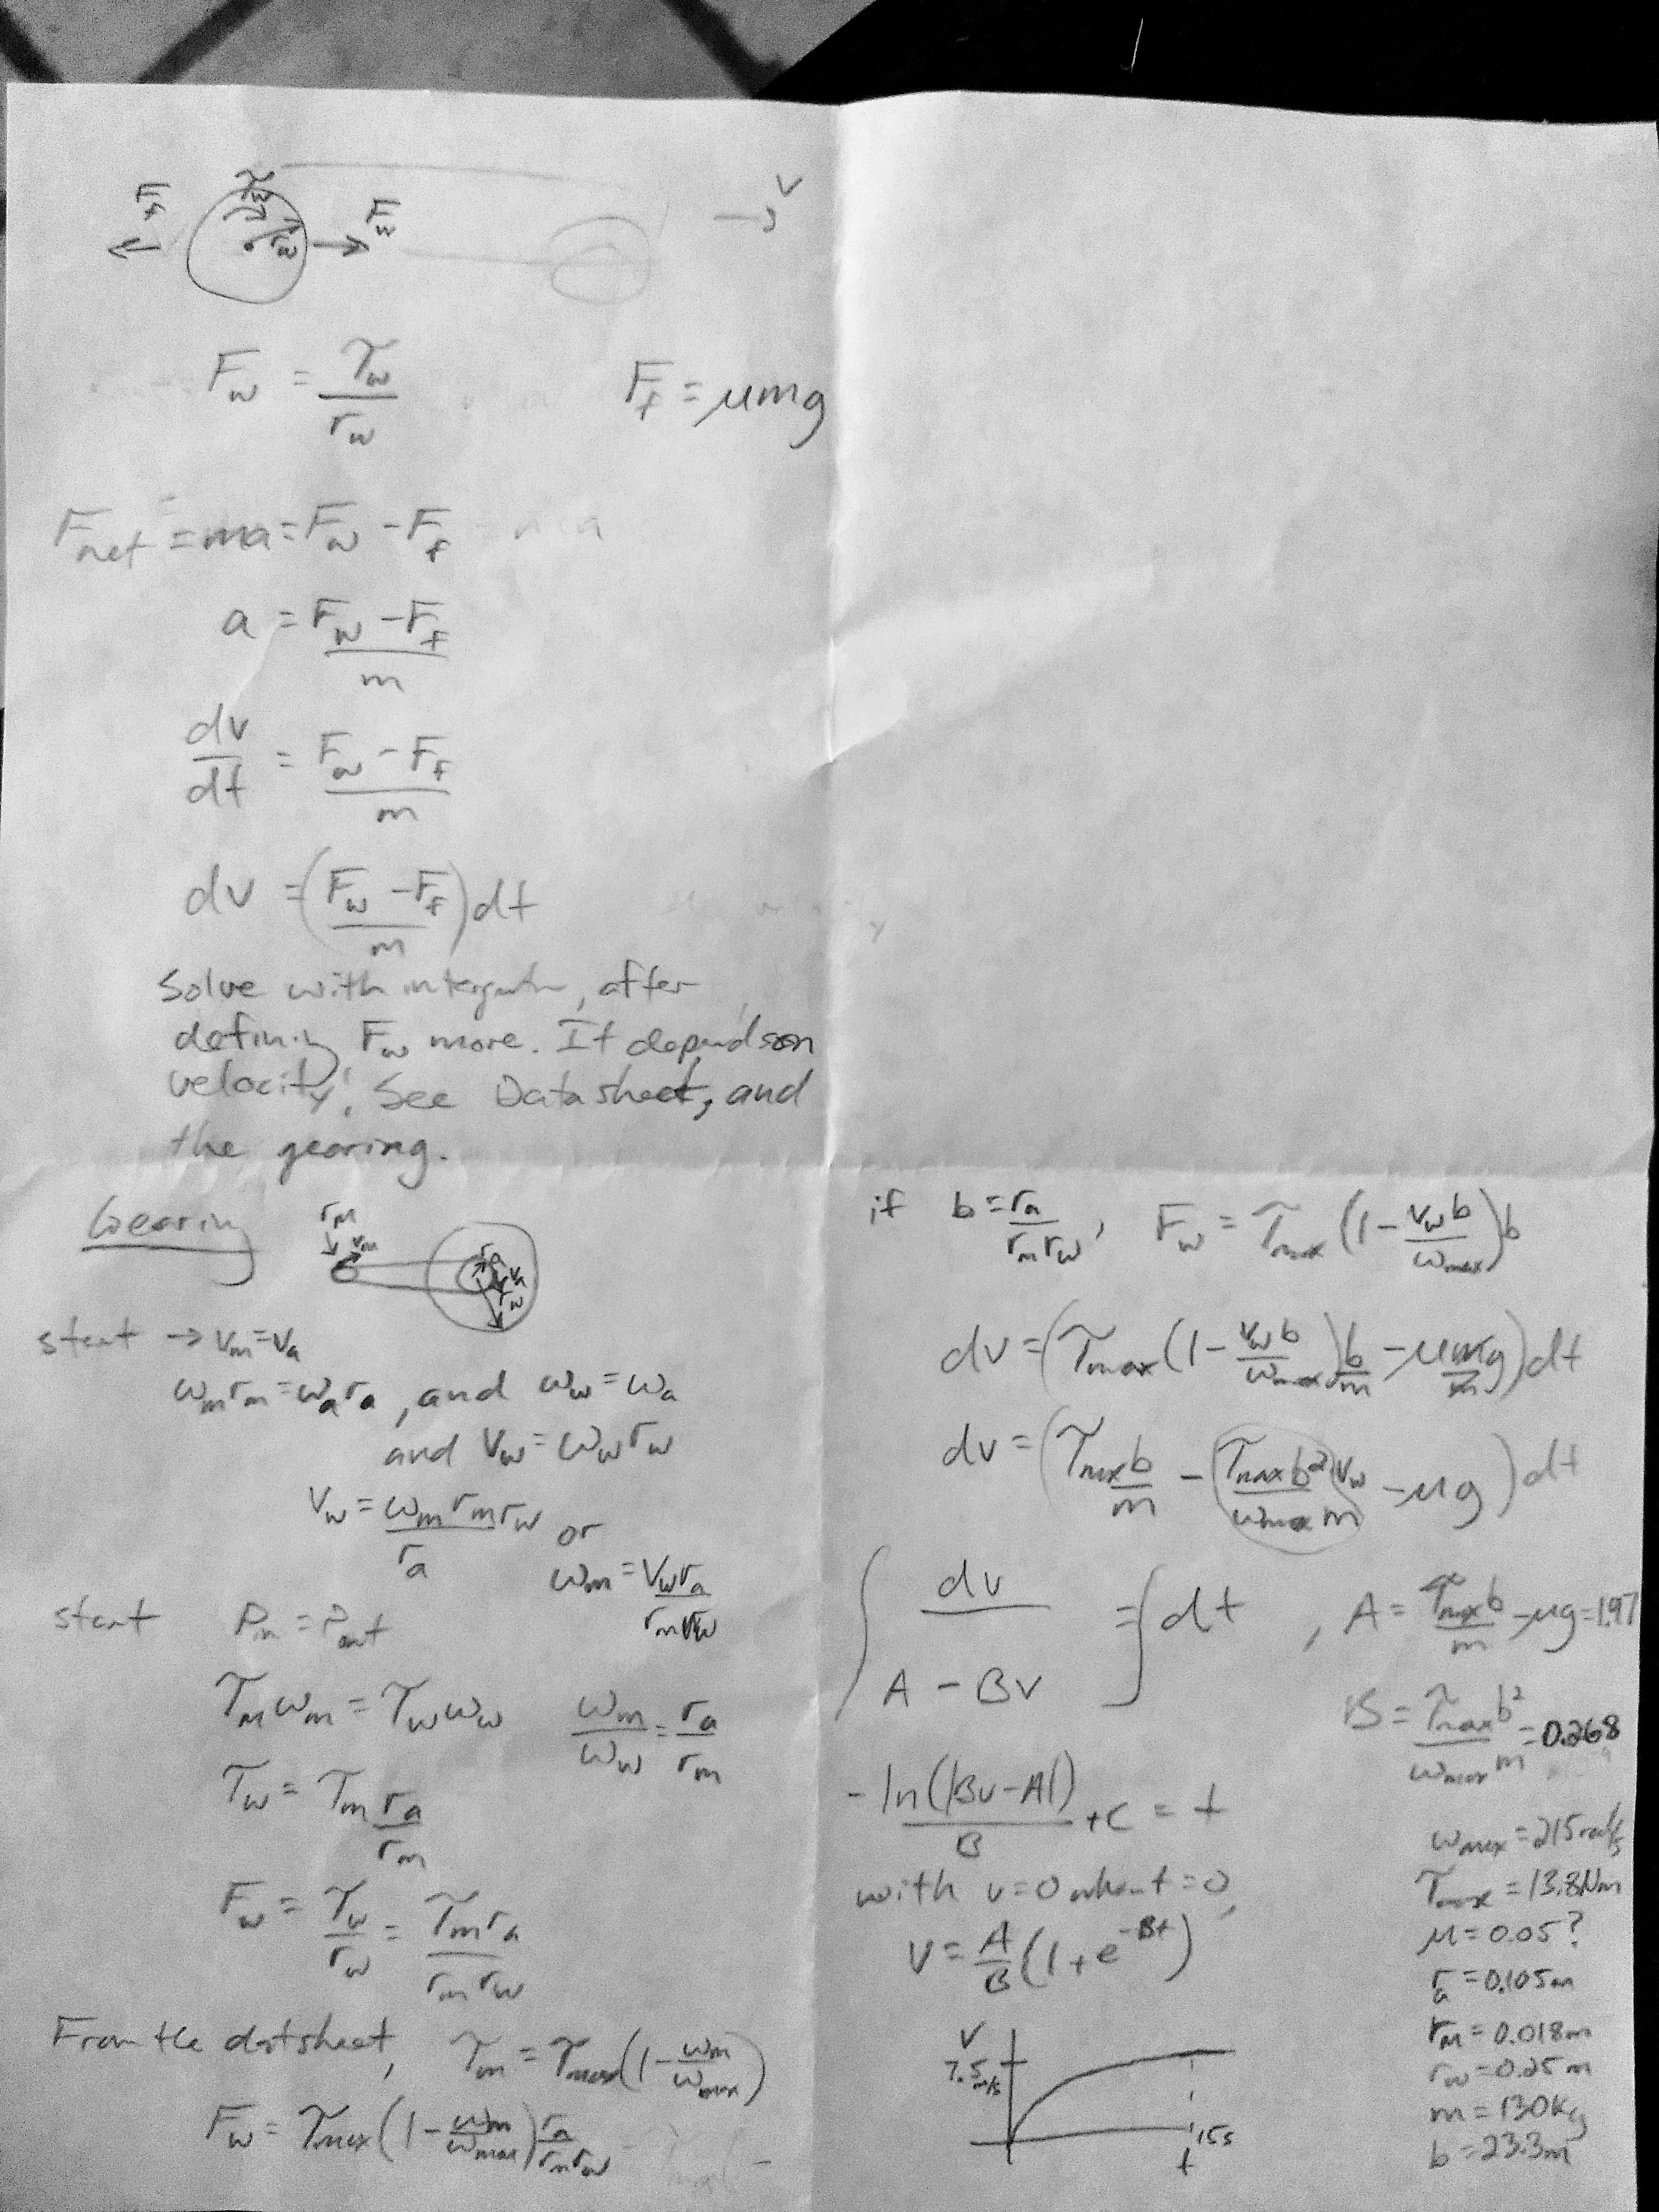 F_f τ_w r_w F_w → v
F_w = τ_w / r_w F_f = μmg
F_net = ma = F_w - F_f
a = (F_w - F_f) / m
dv/dt = (F_w - F_f) / m
dv = ((F_w - F_f) / m) dt
Solve with integration, after
defining F_w more. It depends on
velocity! See Datasheet, and
the gearing.
Gearing r_m v_m r_a v_a r_w
start → v_m = v_a
ω_m r_m = ω_a r_a, and ω_w = ω_a
and v_w = ω_w r_w
v_w = ω_m r_m r_w / r_a or
ω_m = v_w r_a / r_m r_w
start P_in = P_out
τ_m ω_m = τ_w ω_w ω_m / ω_w = r_a / r_m
τ_w = τ_m r_a / r_m
F_w = τ_w / r_w = τ_m r_a / r_m r_w
From the datsheet, τ_m = τ_max (1 - ω_m / ω_max)
F_w = τ_max (1 - ω_m / ω_max) r_a / r_m r_w
if b = r_a / r_m r_w, F_w = τ_max (1 - v_w b / ω_max) b
dv = (τ_max (1 - v_w b / ω_max) b/m - μmg / m) dt
dv = (τ_max b / m - (τ_max b² / ω_max m) v_w - μg) dt
∫ dv / (A - Bv) = ∫ dt, A = τ_max b / m - μg = 1.97
B = τ_max b² / ω_max m = 0.268
-ln(|Bv - A|) / B + c = t
with v = 0 when t = 0,
v = A/B (1 + e^-Bt)
v
7.5 m/s
15s
t
ω_max = 215 rad/s
τ_max = 13.8Nm
μ = 0.05?
r_a = 0.105m
r_m = 0.018m
r_w = 0.25m
m = 130kg
b = 23.3m